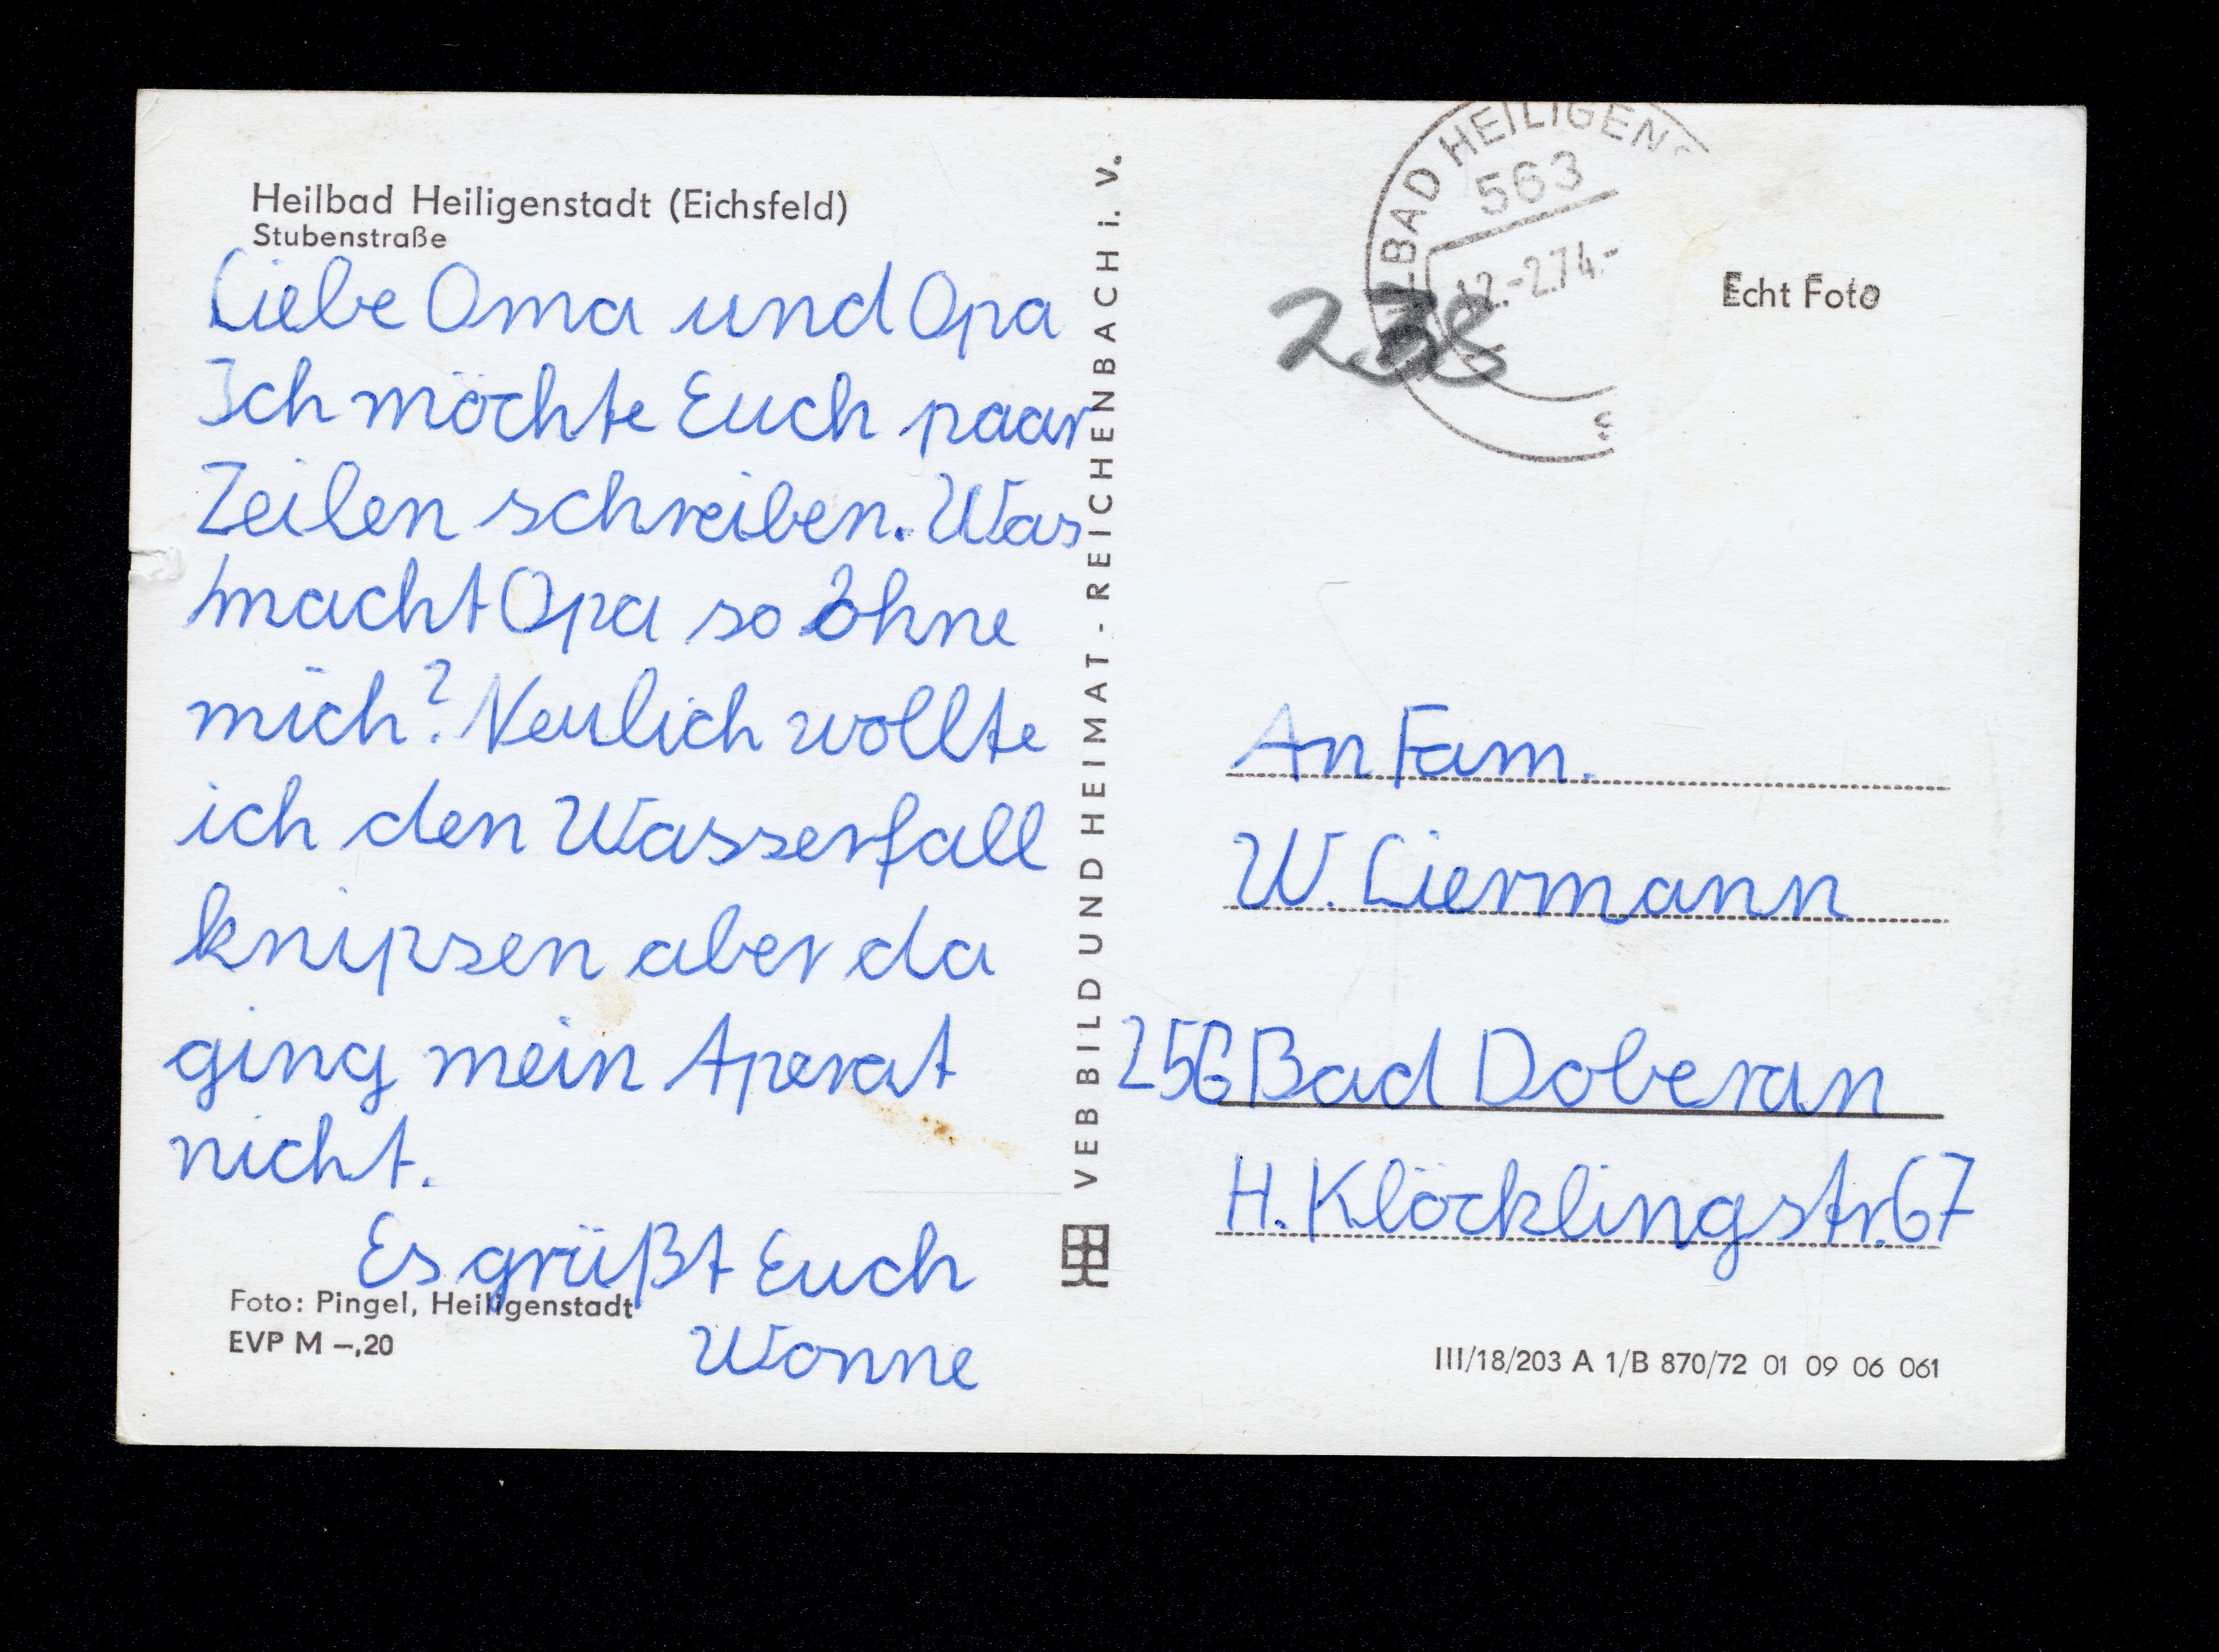 Heilbad Heiligenstadt (Eichsfeld)
Stubenstraße
Liebe Oma und Opa
Ich möchte Euch paar
Zeilen schreiben. Was
macht Opa so ohne
mich? Neulich wollte
ich den Wasserfall
knipsen aber da
ging mein Aperat
nicht.
Es grüßt Euch
Wonne
Foto: Pingel, Heiligenstadt
EVP M –,20
VEB BILD UND HEIMAT - REICHENBACH i. V.
LBAD HEILIGENS
563
12.-2.74.-
Echt Foto
An Fam.
W. Liermann
256 Bad Doberan
H. Klöcklingstr. 67
III/18/203 A 1/B 870/72 01 09 06 061